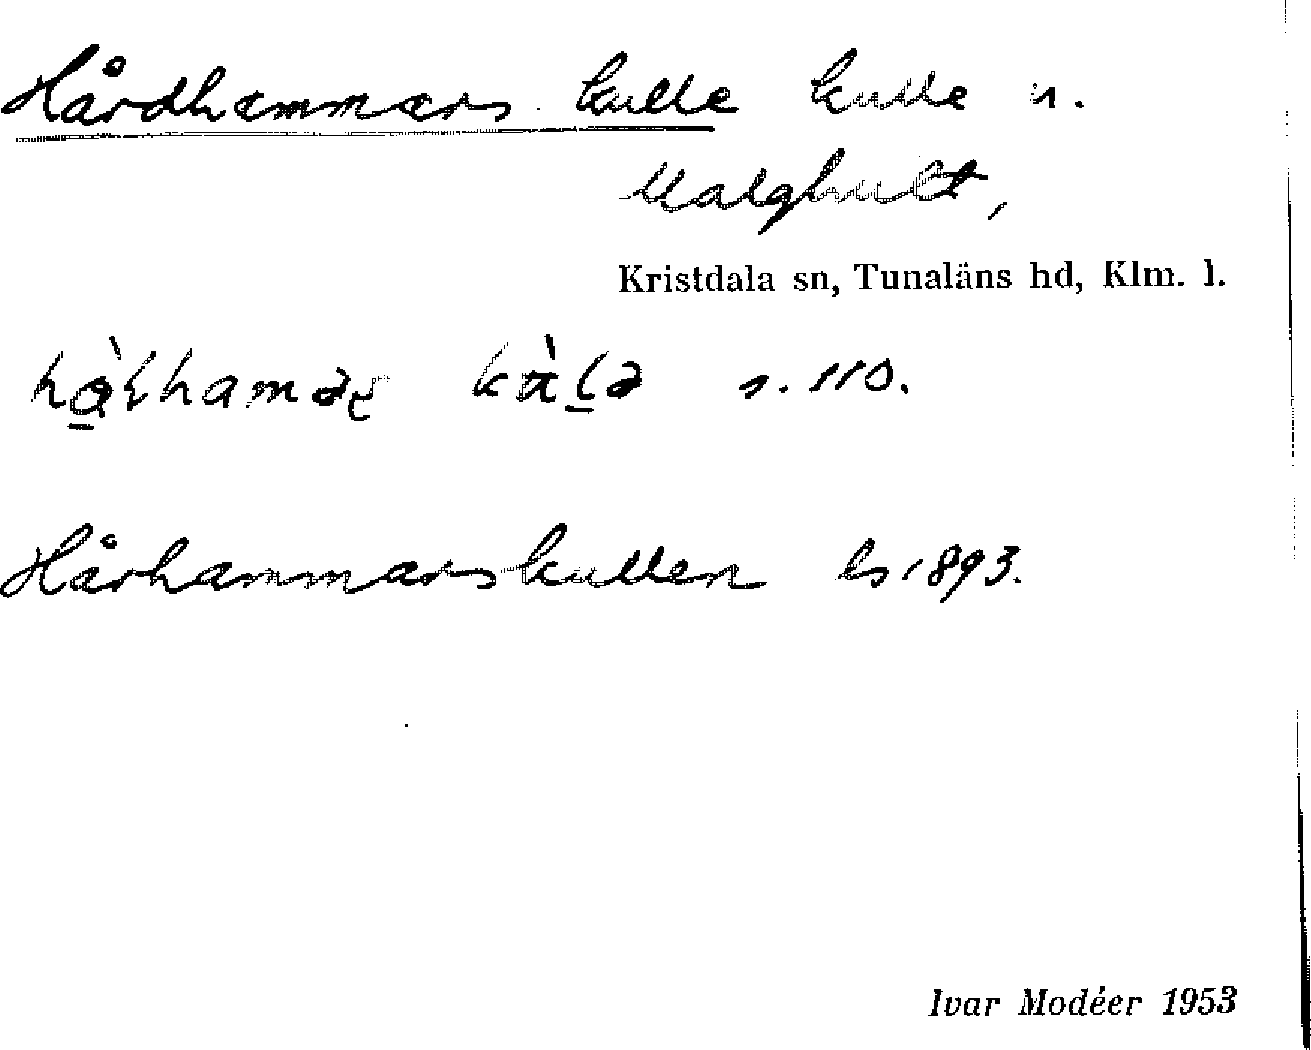 Hårdhammars kulle kulle n.
Malghult,
Kristdala sn, Tunaläns hd, Klm. l.
s. 110.
Hårhammarskullen ls 1893.
Ivar Modéer 1953